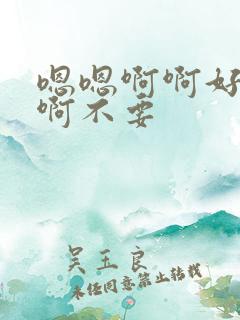 嗯嗯啊啊好
啊不要
吴玉良
未经同意禁止转载